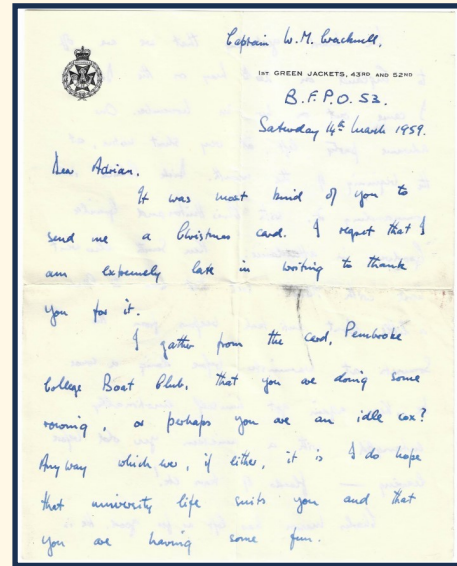 Captain W. M. Wacknell,
1ST GREEN JACKETS, 43RD AND 52ND
B.F.P.O. 53.
Saturday 14th March 1959.
Dear Adrian.
It was most kind of you to
send me a Christmas card. I regret that I
am extremely late in writing to thank
you for it.
I gather from the card, Pembroke
College Boat Club, that you are doing some
rowing, or perhaps you are an idle cox?
Anyway whichever, if either, it is I do hope
that university life suits you and that
you are having some fun.